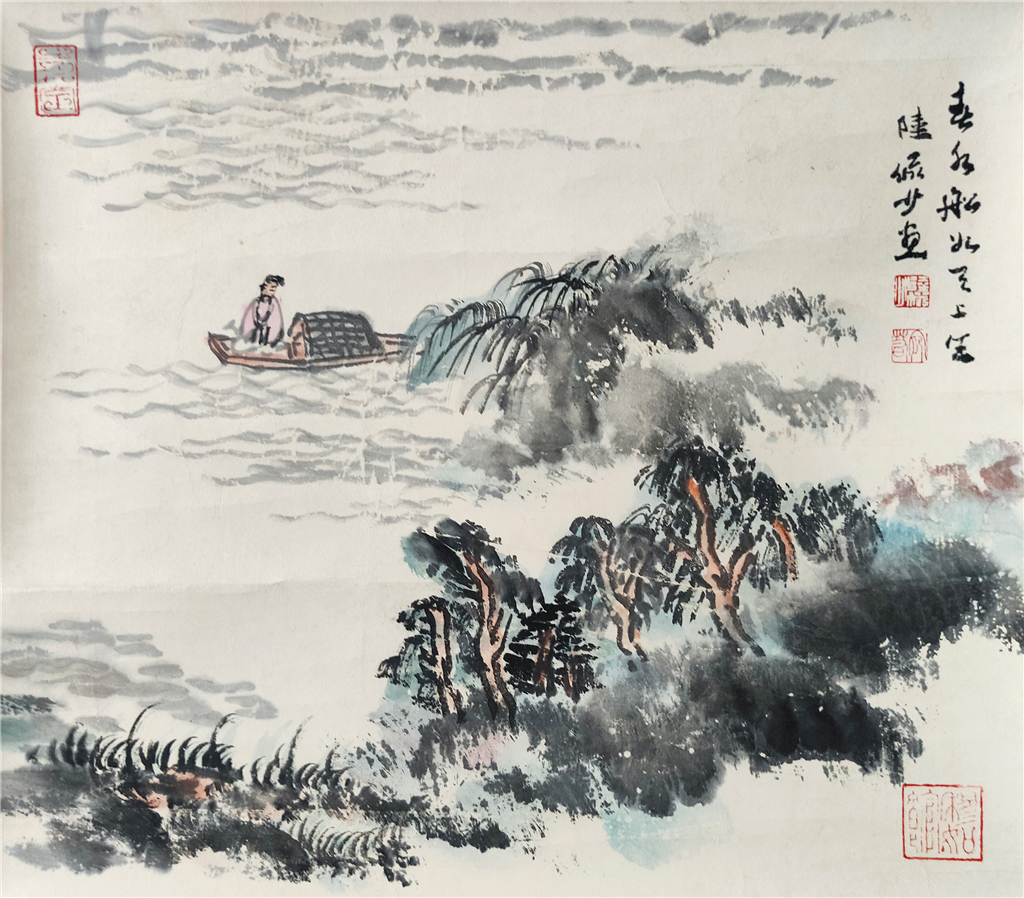 春水船如天上坐
陸儼少畫